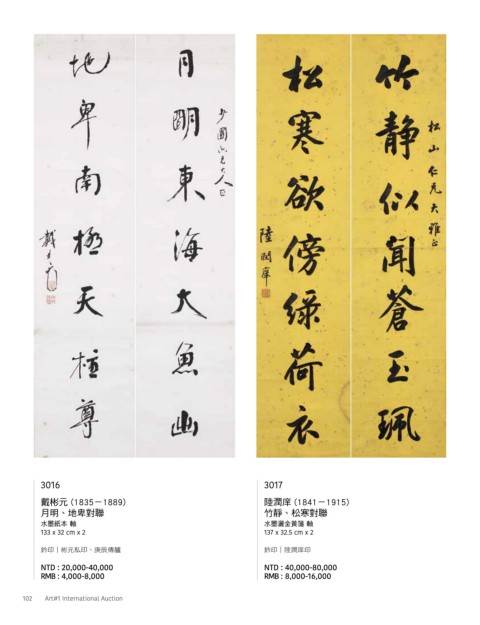 月明東海大魚幽
少圃仁兄大人正
地卑南極天柱尊
戴彬元
竹静似聞蒼玉珮
松山仁兄大雅正
松寒欲傍綠荷衣
陸潤庠
3016
戴彬元 (1835－1889)
月明、地卑對聯
水墨紙本 軸
133 x 32 cm x 2
鈐印｜彬元私印、庚辰傳臚
NTD : 20,000-40,000
RMB : 4,000-8,000
3017
陸潤庠 (1841－1915)
竹靜、松寒對聯
水墨灑金黃箋 軸
137 x 32.5 cm x 2
鈐印｜陸潤庠印
NTD : 40,000-80,000
RMB : 8,000-16,000
102 Art#1 International Auction